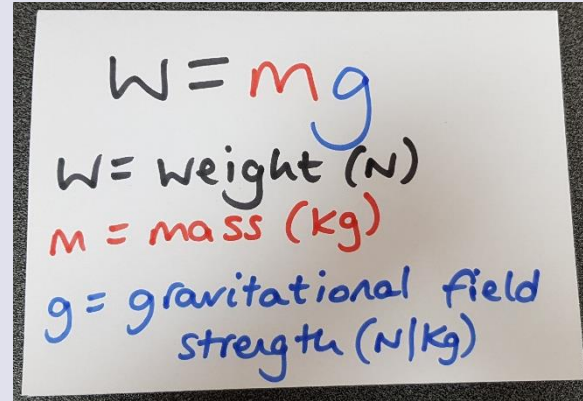 W = mg
W = weight (N)
m = mass (kg)
g = gravitational field
strength (N/kg)